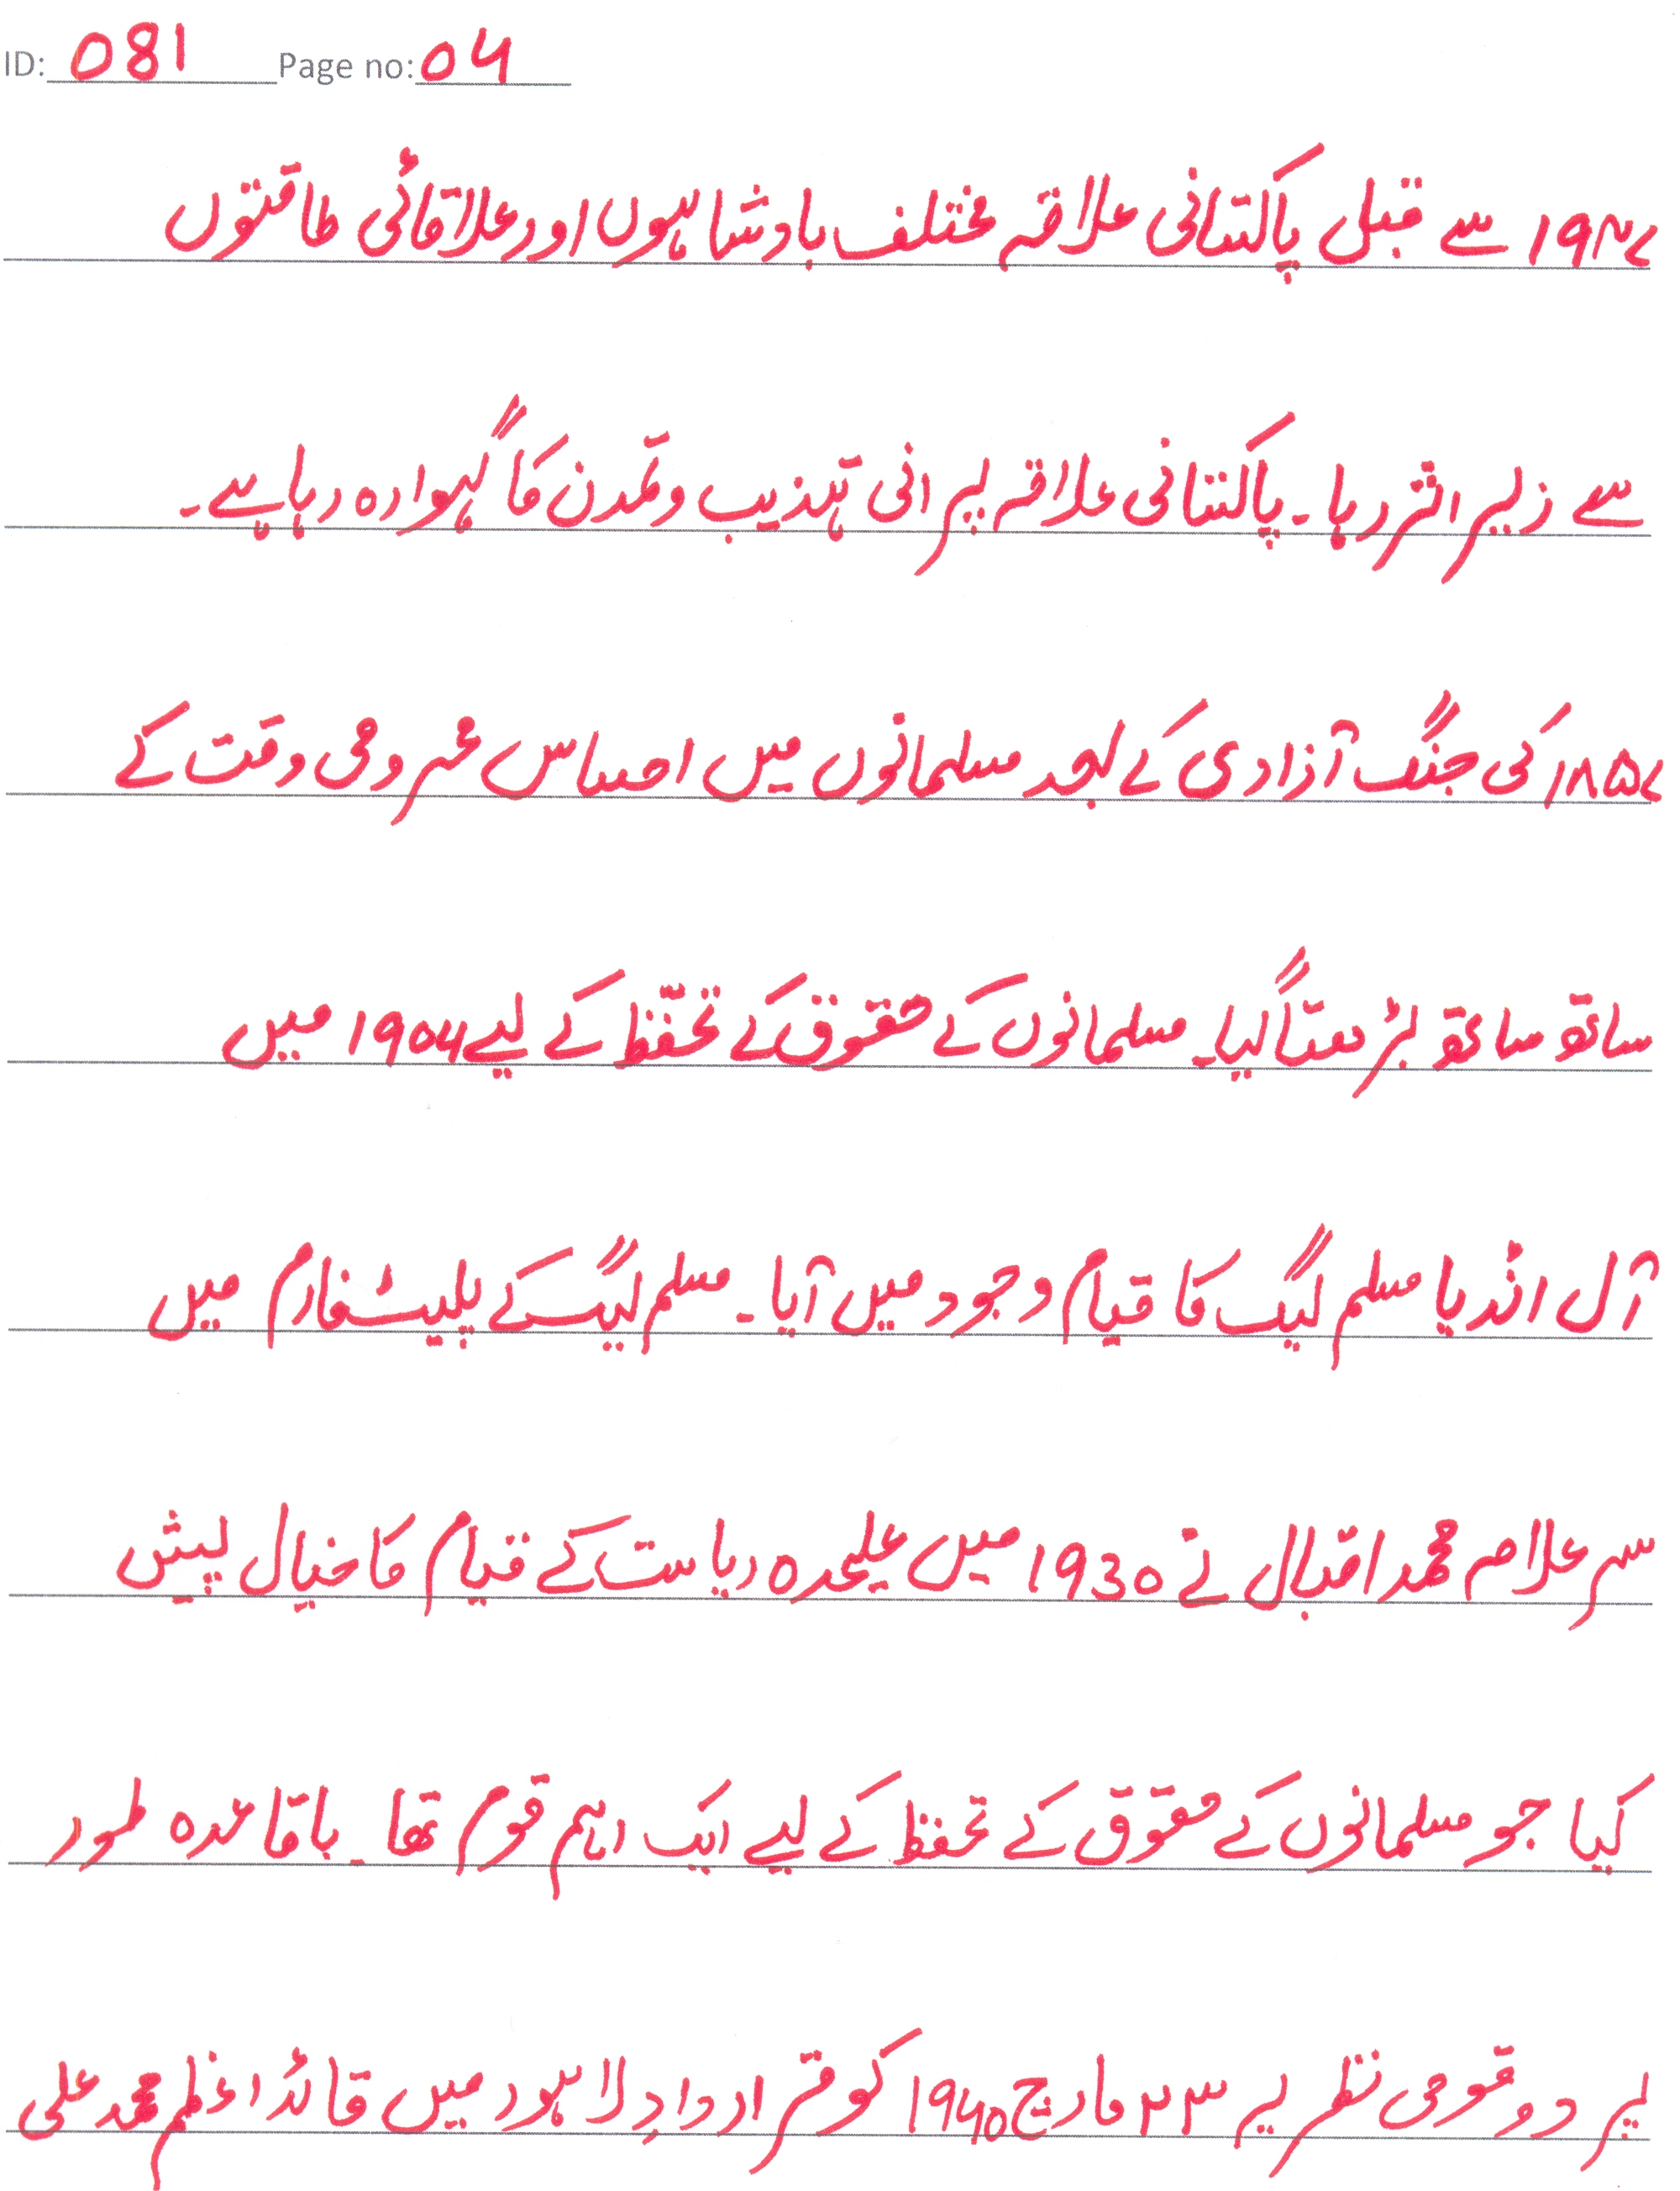 ID: 081 Page no: 04
۱۹۴۷ سے قبل پاکستانی علاقہ مختلف بادشاہوں اور علاقائی طاقتوں
سے زیر اثر رہا۔ پاکستانی علاقہ پرانی تہذیب و تمدن کا گہوارہ رہا ہے۔
۱۸۵۷ کی جنگ آزادی کے بعد مسلمانوں میں احساس محرومی وقت کے
ساتھ ساتھ بڑھتا گیا۔ مسلمانوں کے حقوق کے تحفّظ کے لیے ۱۹۰۶ میں
آل انڈیا مسلم لیگ کا قیام وجود میں آیا۔ مسلم لیگ کے پلیٹفارم میں
سر علامہ محمد اقبال نے 1930 میں علیحدہ ریاست کے قیام کا خیال پیش
کیا جو مسلمانوں کے حقوق کے تحفظ کے لیے ایک اہم قوم تھا۔ باقاعدہ طور
پر دو قومی نظریہ پر ۲۳ مارچ 1940 کو قراردادِ لاہور میں قائد اعظم محمد علی